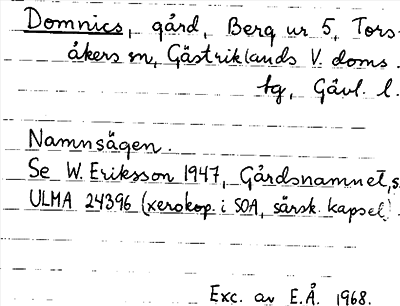 Domnics, gård, Berg ur 5, Tors-
åkers sn, Gästriklands V. doms.
tg, Gävl. l.
Namnsägen.
Se W. Eriksson 1947, Gårdsnamnet, s.
ULMA 24396 (xerokop. i SOA, särsk. kapsel).
Exc. av E.Å. 1968.